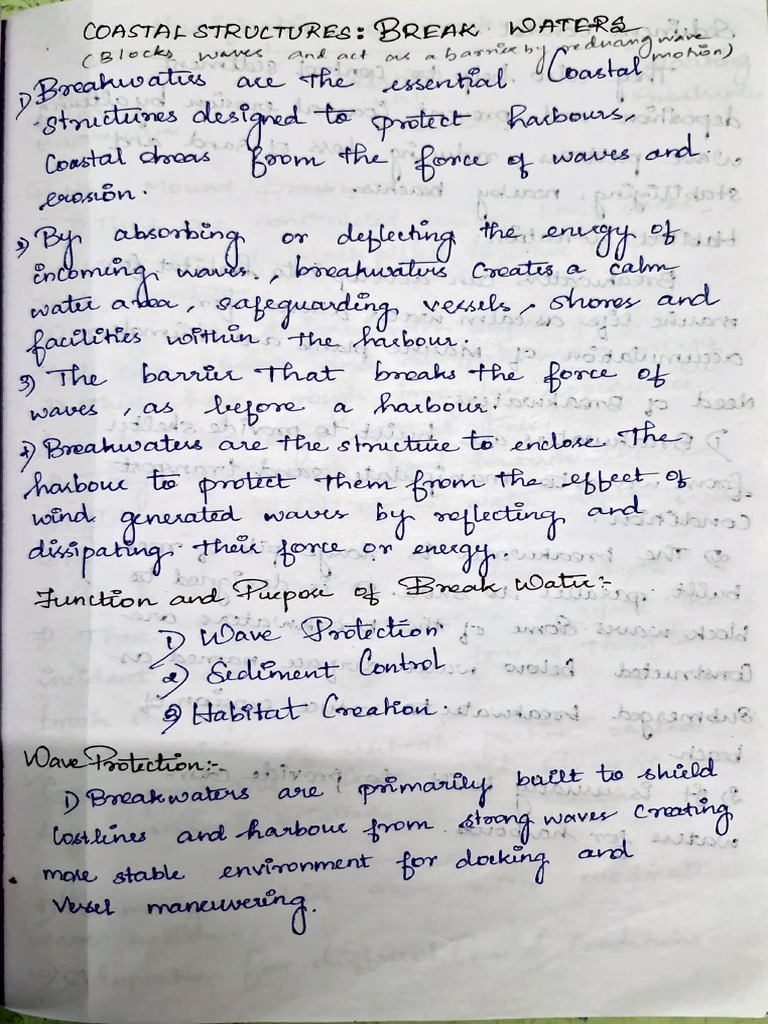 COASTAL STRUCTURES: BREAK WATERS
(Blocks waves and act as a barrier by reducing wave motion)
1) Breakwaters are the essential Coastal
structures designed to protect harbours,
Coastal areas from the force of waves and
erosion.
2) By absorbing or deflecting the energy of
incoming waves, breakwaters creates a calm
water area, safeguarding vessels, shores and
facilities within the harbour.
3) The barrier that breaks the force of
waves, as before a harbour.
4) Breakwaters are the structure to enclose the
harbour to protect them from the effect of
wind generated waves by reflecting and
dissipating their force or energy.
Function and Purpose of Break Water:-
1) Wave Protection
2) Sediment Control
3) Habitat Creation.
Wave Protection:-
1) Breakwaters are primarily built to shield
Costlines and harbour from strong waves creating
more stable environment for docking and
Vessel maneuvering.